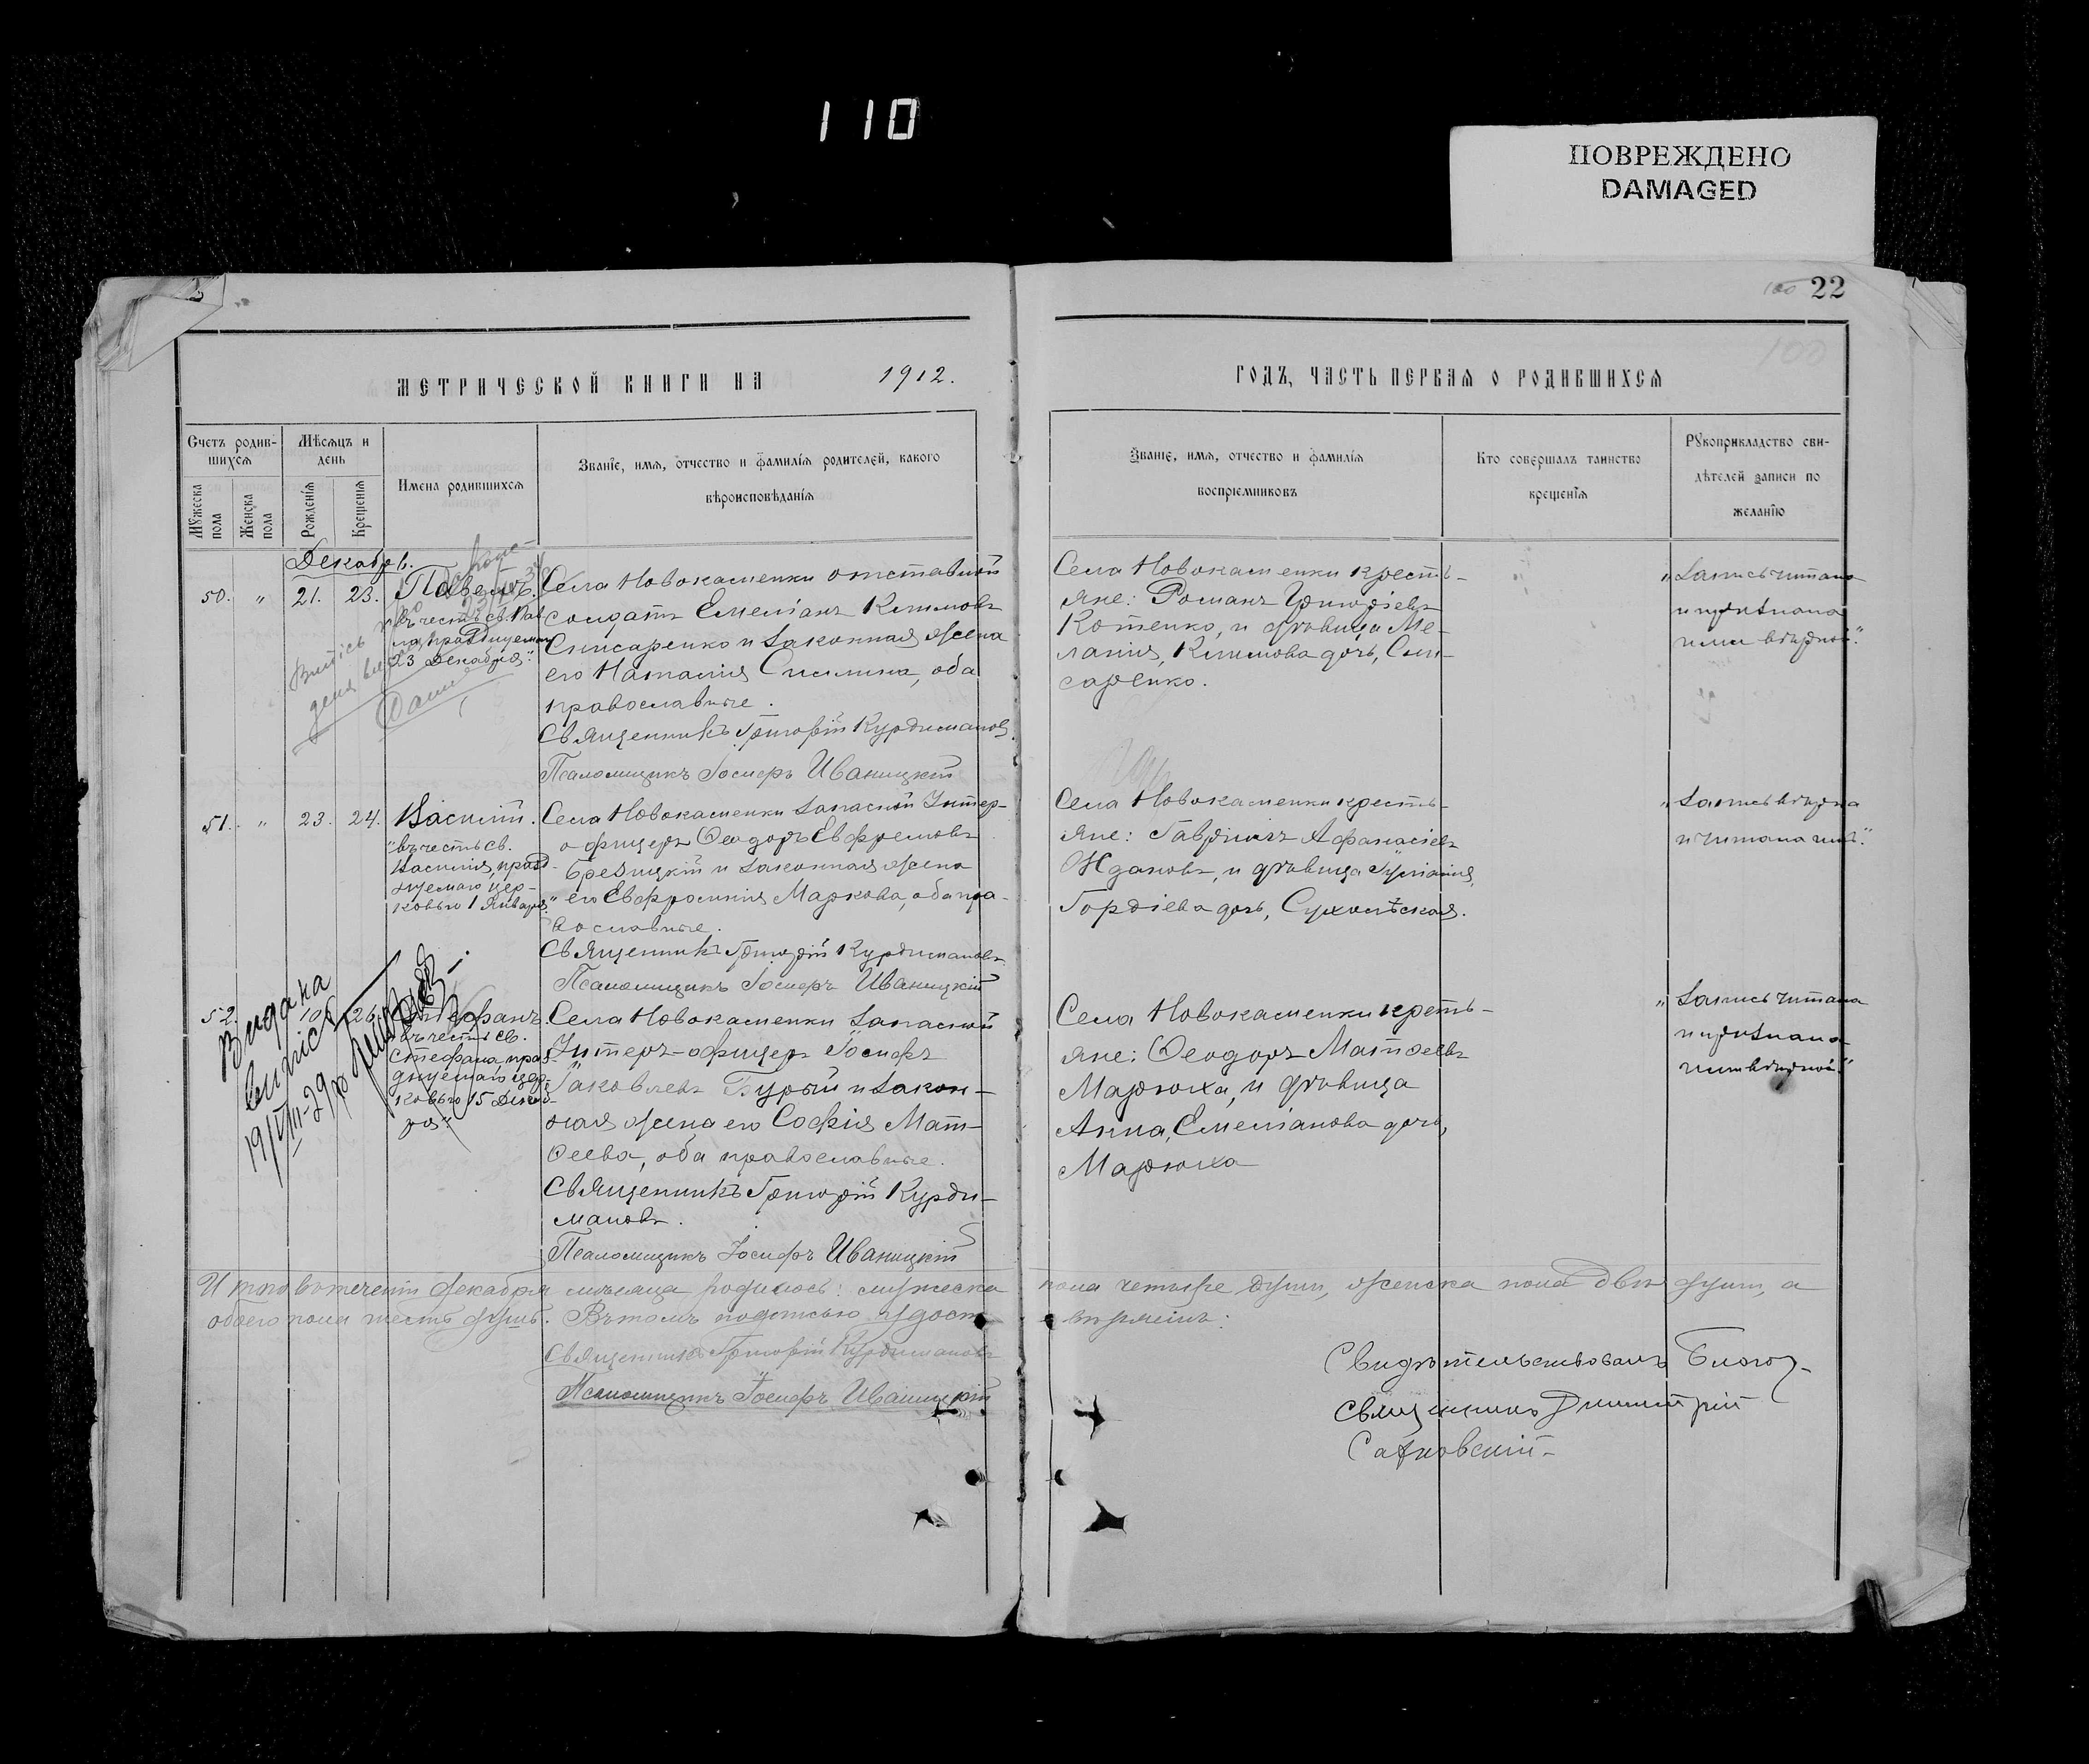 110
ПОВРЕЖДЕНО
DAMAGED
100 22
100
МЕТРИЧЕСКОЙ КНИГИ НА 1912.
ГОДЪ, ЧАСТЬ ПЕРВАЯ О РОДИВШИХСЯ
Счетъ родив-
шихся
Мѣсяцъ и
день
Мужеска
пола
Женска
пола
Рожденія
Крещенія
Имена родившихся
Званіе, имя, отчество и фамилія родителей, какого
вѣроисповѣданія
Званіе, имя, отчество и фамилія
воспріемниковъ
Кто совершалъ таинство
крещенія
Рукоприкладство сви-
дѣтелей записи по
желанію
Декабрь.
50. " 21. 23. Павелъ.
въ честь св. Пав-
ла, празднуемаго
23 Декабря".
Села Новокаменки отставной
солдатъ Емеліанъ Климовъ
Слисаренко и законная жена
его Наталія, оба
православные.
Священникъ Григорій Курдимановъ.
Псаломщикъ Іосифъ Иваницкій
Села Новокаменки кресть-
яне: Романъ Григоріевъ
Котенко, и дѣвица Ме-
ланія, Климова дочь, Сли-
саренко.
"Запись читана
51. " 23. 24. Василій.
"въ честь св.
Василія, празд-
нуемаго цер-
ковью 1 Января."
Села Новокаменки запасной Унтер-
офицеръ Ѳеодоръ Евфремовъ
Брезицкій и законная жена
его Евфросинія Маркова, оба пра-
вославные.
Священникъ Григорій Курдимановъ.
Псаломщикъ Іосифъ Иваницкій
Села Новокаменки кресть-
яне: Гавріилъ Афанасіевъ
Ждановъ, и дѣвица
Гордіева дочь,
"Запись вѣрна
и читана
Видана
виписка
19/VIII-29р
52. 26. Стефанъ.
въ честь св.
Стефана, праз-
днуемаго цер-
ковью 15 Декаб-
ря".
Села Новокаменки запасной
Унтеръ-офицеръ Іосифъ
Іаковлевъ Бурый и закон-
ная жена его Софія Мат-
ѳеева, оба православные.
Священникъ Григорій Курди-
мановъ.
Псаломщикъ Іосифъ Иваницкій
Села Новокаменки кресть-
яне: Ѳеодоръ Матѳеевъ
Марюха, и дѣвица
Анна, Емеліанова дочь,
Марюха
"Запись читана
Итого въ теченіи Декабря мѣсяца родилось: мужеска пола четыре души, женска пола двѣ души, а
обоего пола шесть душъ. Въ томъ подписью удостовѣряемъ:
Священникъ Григорій Курдимановъ
Псаломщикъ Іосифъ Иваницкій
Свидѣтельствовалъ Благоч.
Священникъ Димитрій